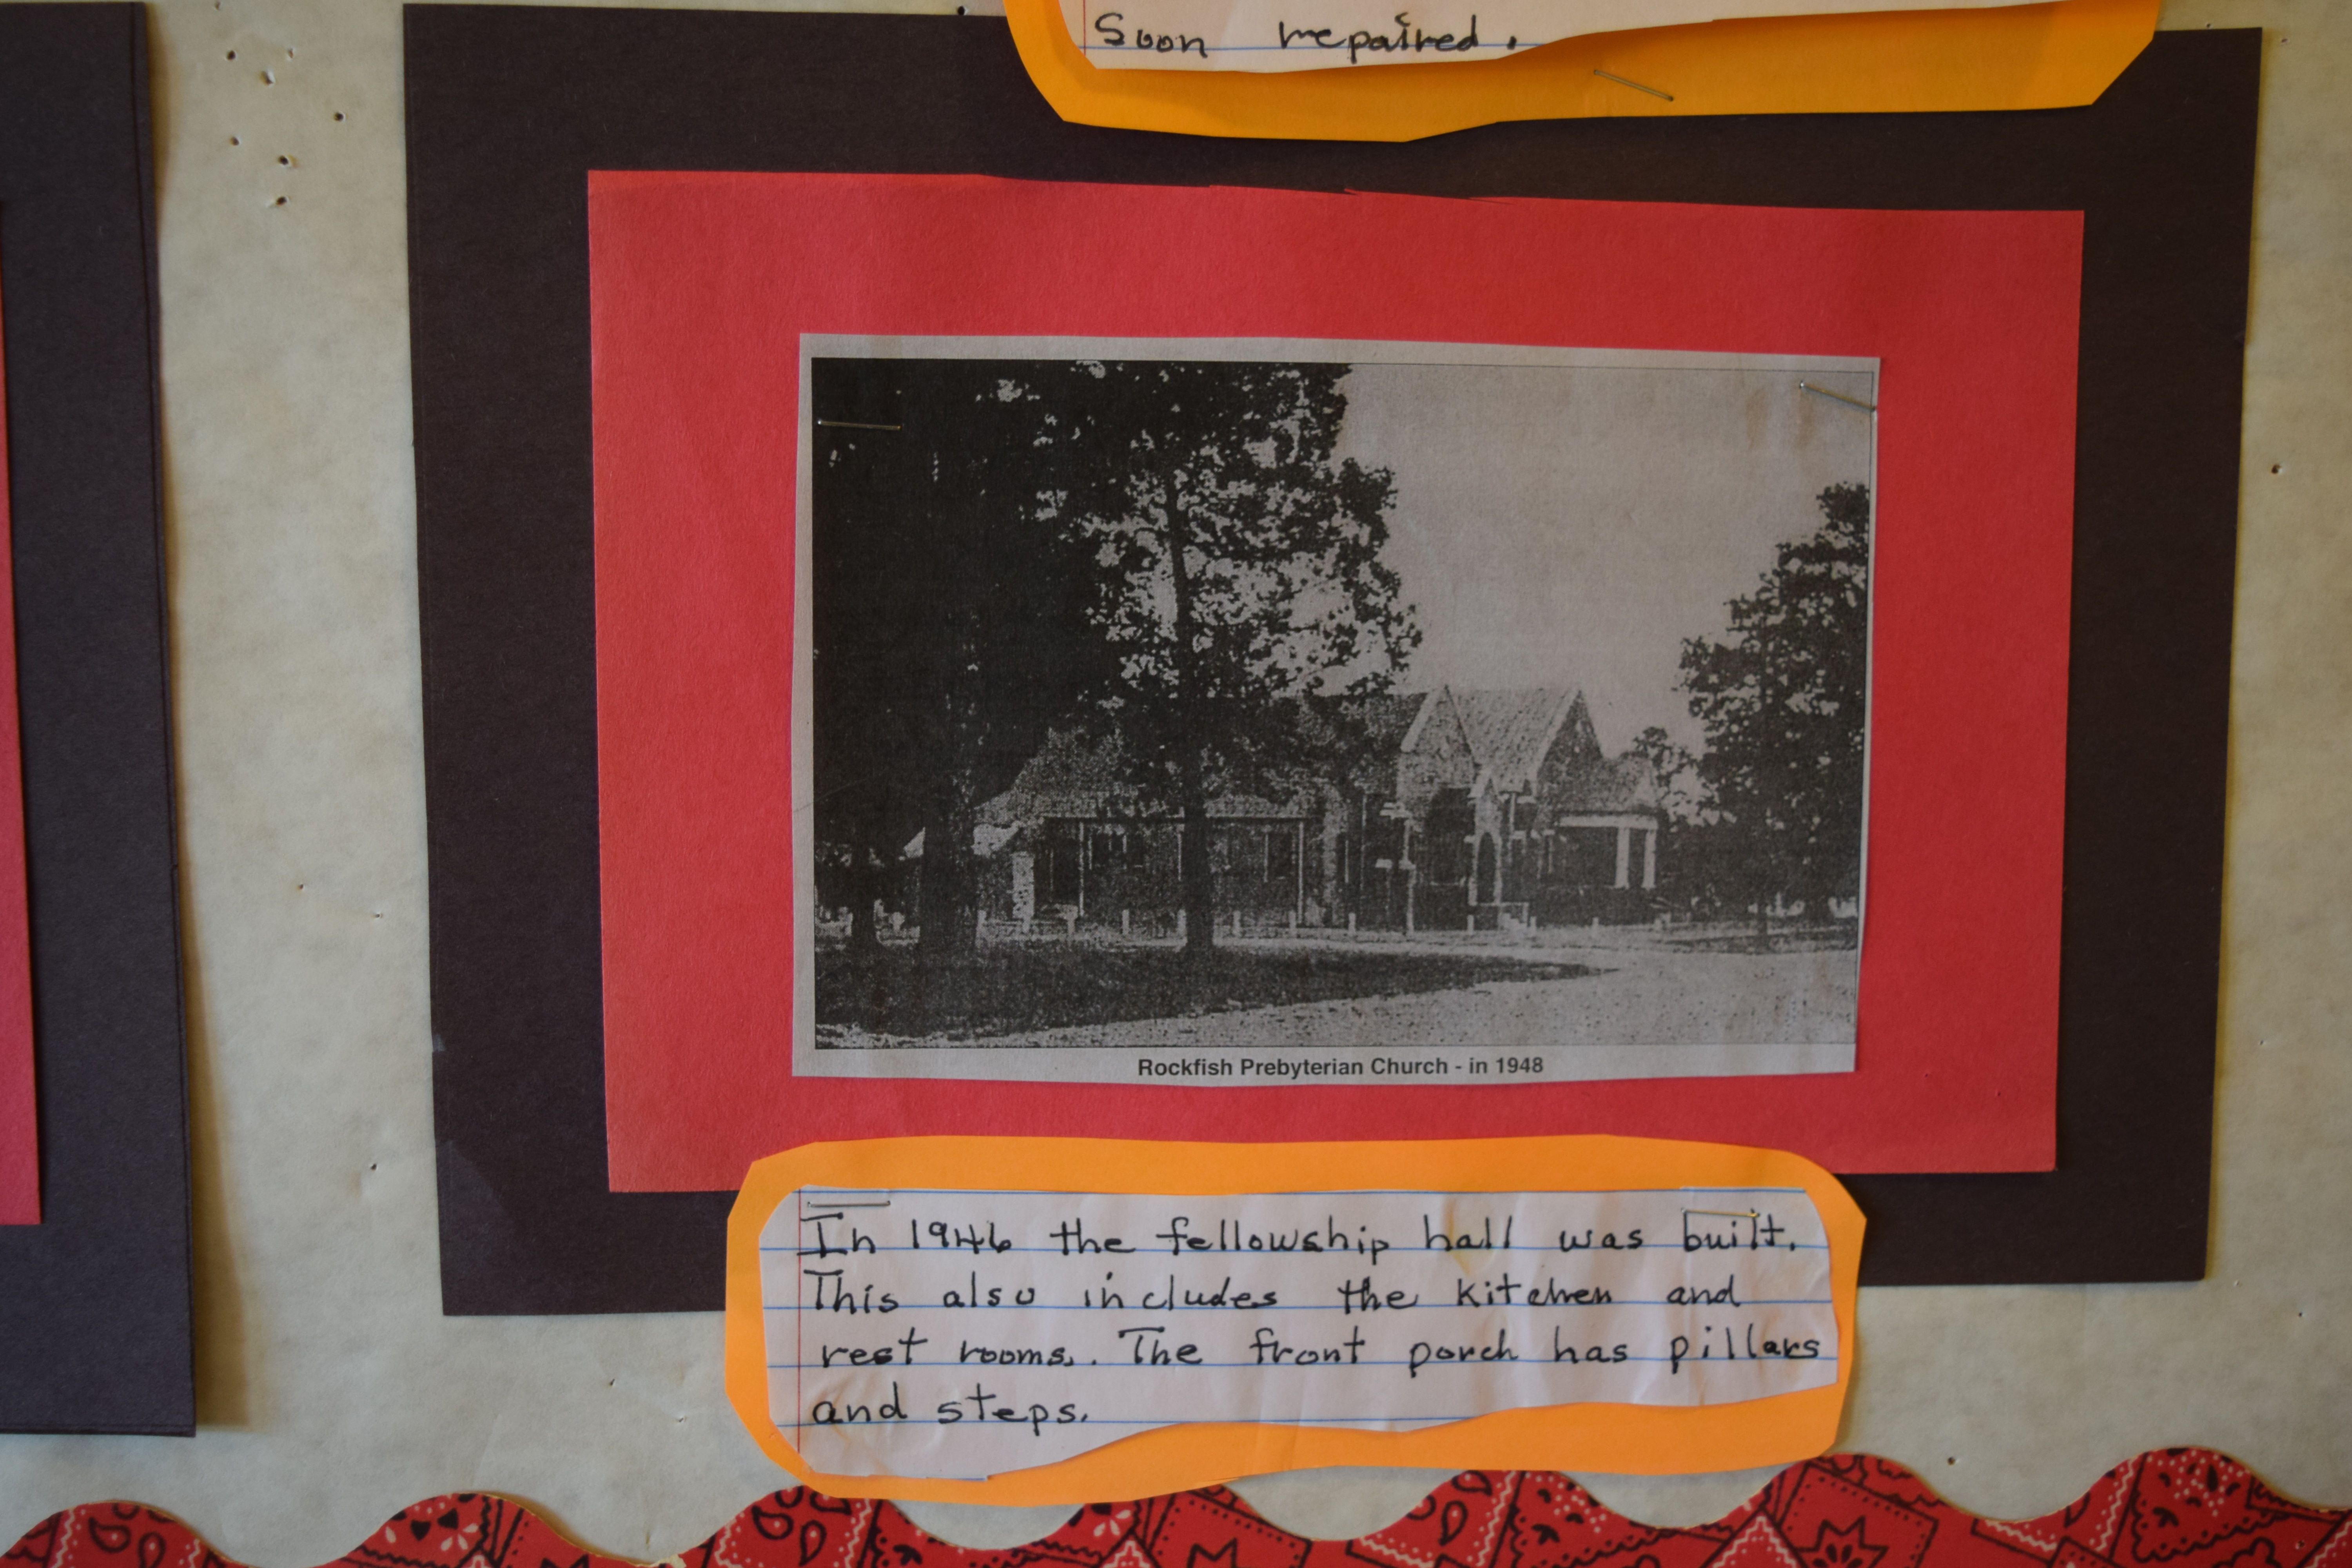 Soon repaired.
Rockfish Prebyterian Church - in 1948
In 1946 the fellowship hall was built.
This also includes the kitchen and
rest rooms. The front porch has pillars
and steps.